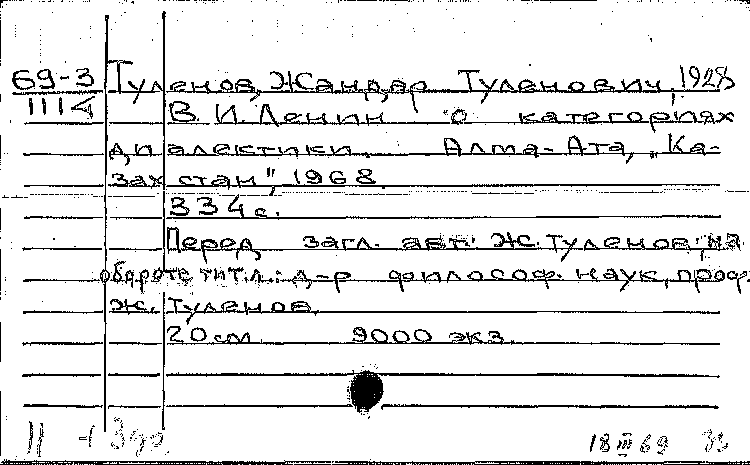 69-3 Туленов, Жандар Туленович, 1928
В. И. Ленин о категориях
диалектики. Алма-Ата, „Ка-
захстан", 1968.
334 с.
Перед загл. авт.: Ж. Туленов; на
обороте тит. л.: д-р философ. наук, проф.
Ж. Туленов.
20 см. 9000 экз.
18 III 69